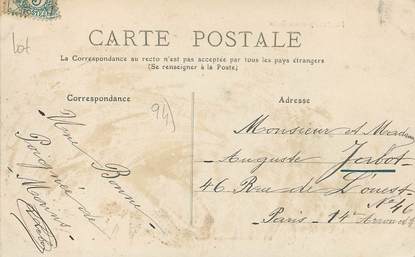 lot
CARTE POSTALE
La Correspondance au recto n'est pas acceptée par tous les pays étrangers
(Se renseigner à la Poste)
Correspondance
94)
Une Bonne
Poignée de
Mains
Adresse
Monsieur et Madame
Auguste Jorbot
46 Rue de L'ouest
Nº 46
Paris - 14e Arrondt